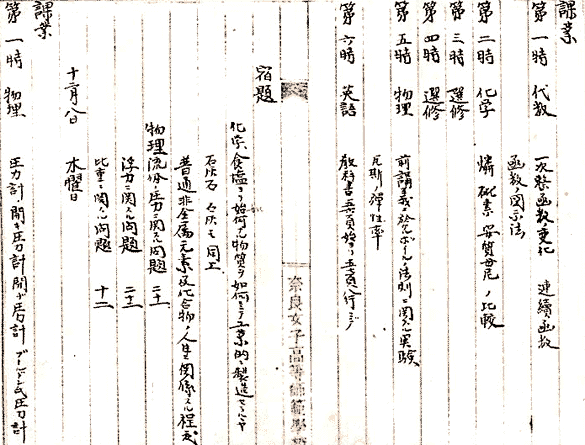 課業
第一時 代数 一次整函数変化 連續函数
函数ノ図示法
第二時 化学 燐 砒素 安質母尼ノ比較
第三時 選修
第四時 選修
第五時 物理 前講義ニ於ケルボイルノ法則ニ関スル実験
瓦斯ノ弾性率
第六時 英語 教科書
宿題
化学 食塩ヨリ如何ナル物質ヲ如何ニシテ工業的ニ製造セラルヽヤ
石灰石 石炭モ同上
普通非金属元素及化合物ノ人生ニ関係スル程度
物理 流体ノ圧力ニ関スル問題 二十一
浮力ニ関スル問題 二十二
比重ニ関スル問題 十二
奈良女子高等師範學校
十二月八日 水曜日
課業
第一時 物理 圧力計、開ガ圧力計 閉ガ圧力計